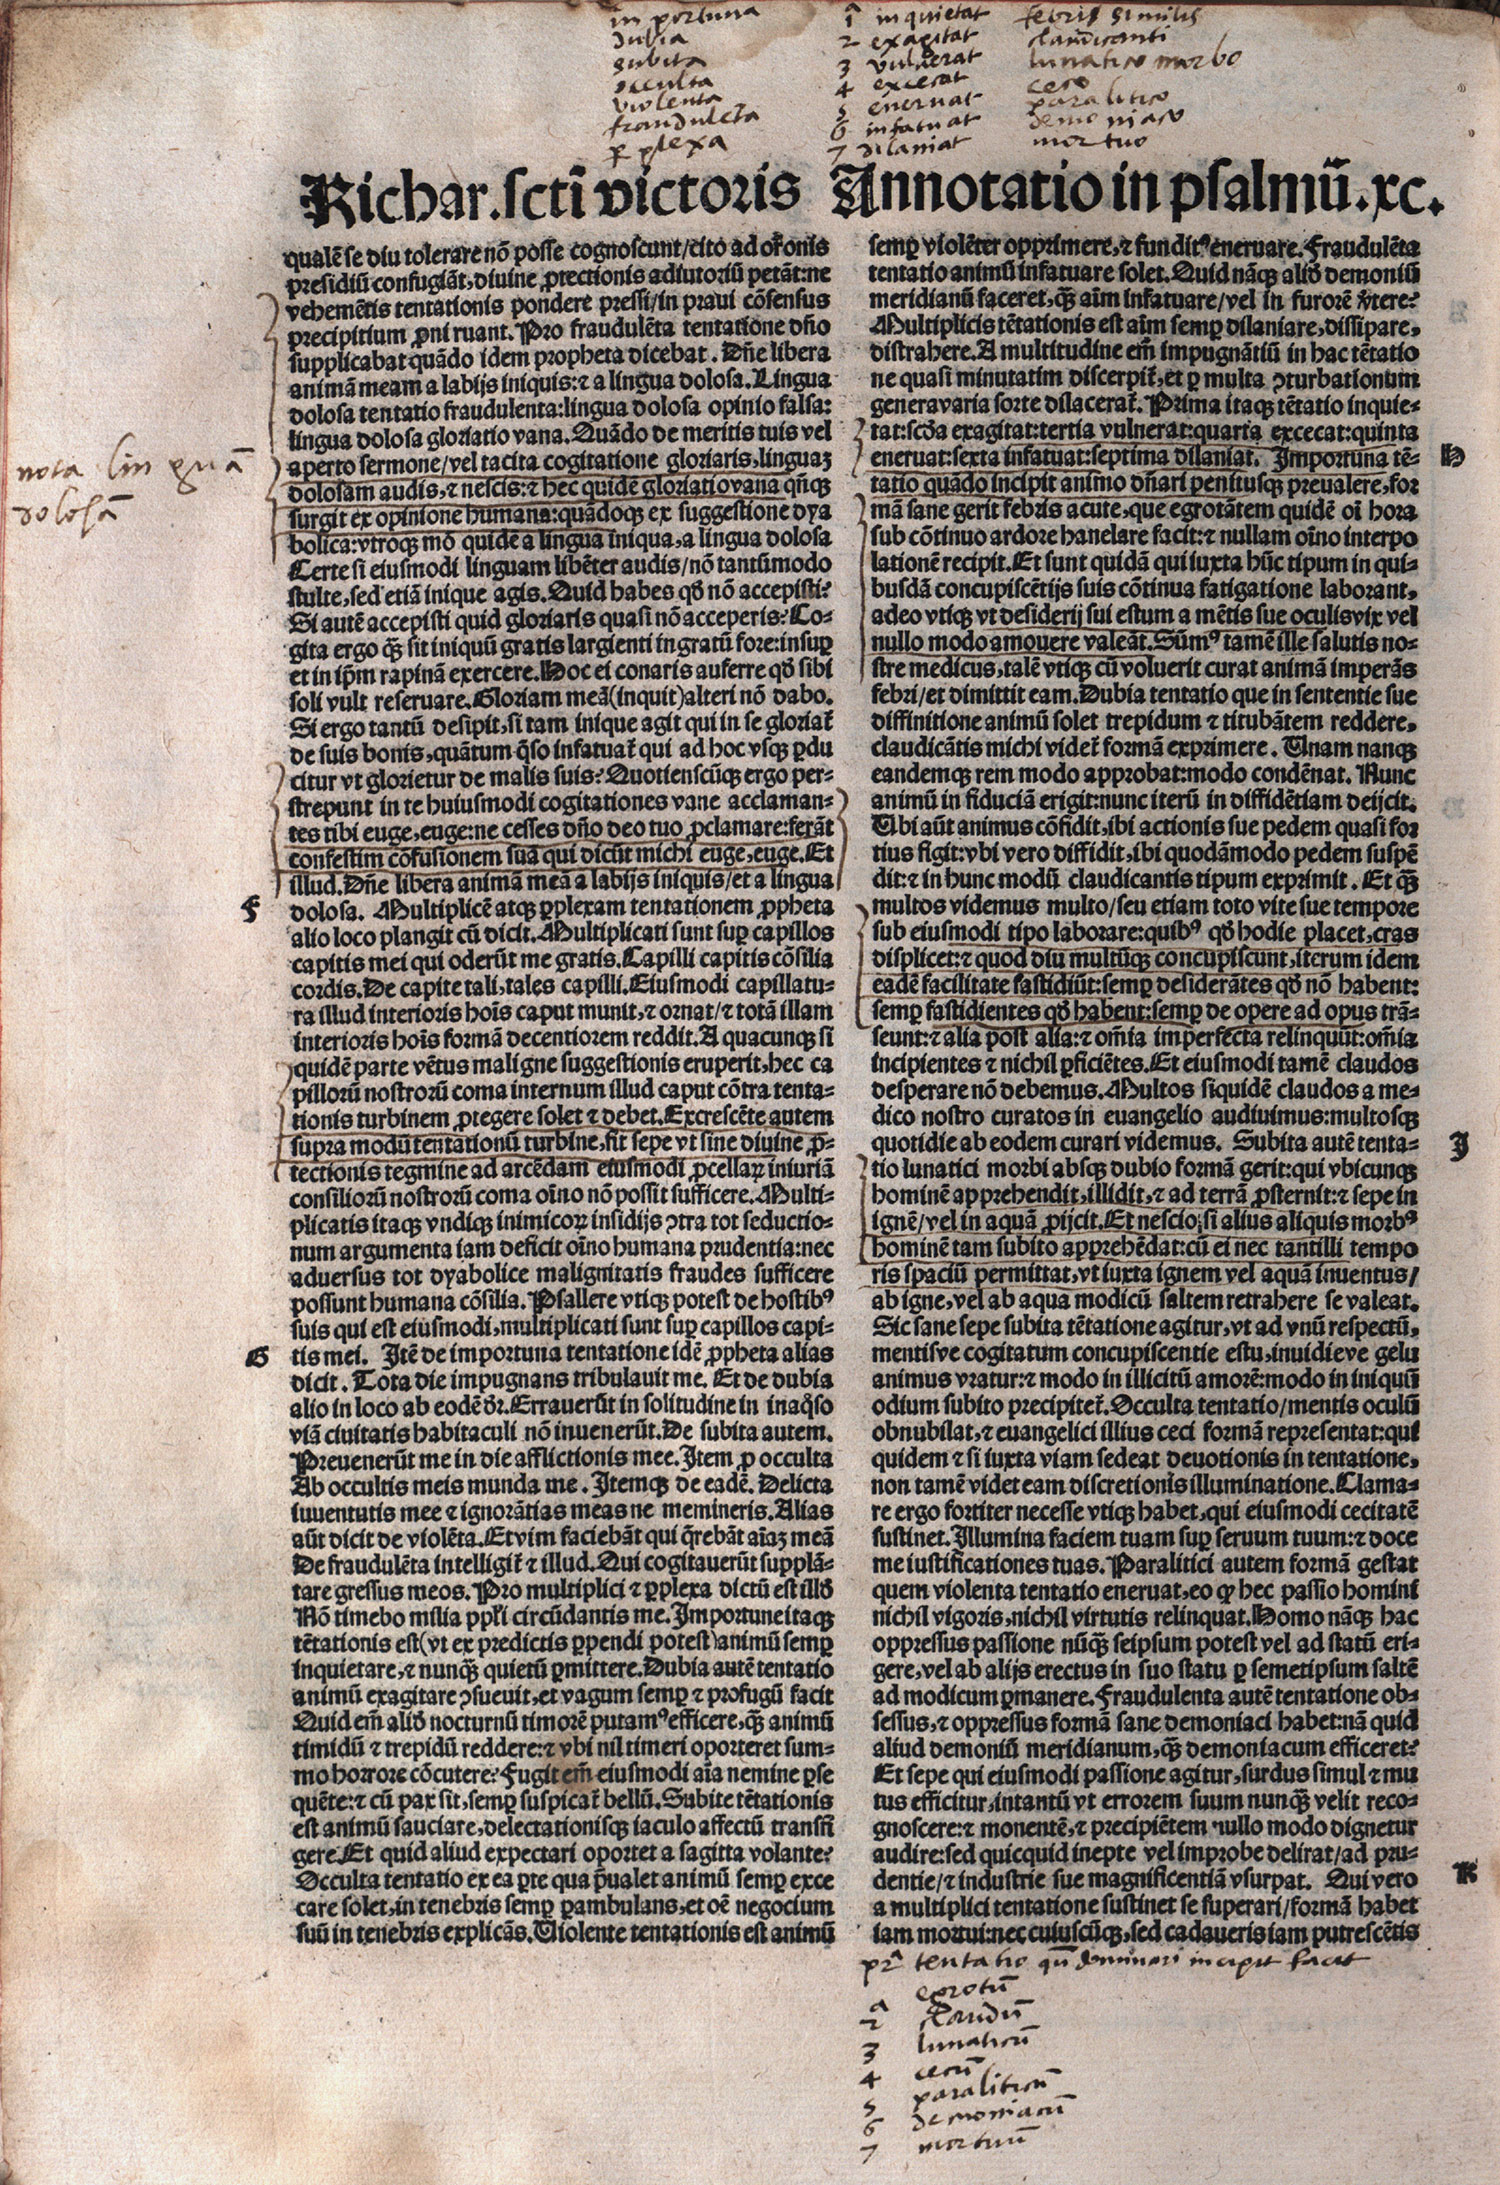 in portuna
dubia
subita
occulta
violenta
fraudulēta
ꝑ plexa
1 inquietat
2 exagitat
3 vulnerat
4 excecat
5 eneruat
6 infatuat
7 dilaniat
febris similis
claudicanti
lunatico morbo
ceco
paralitico
demoniaco
mortuo
Richar. scti victoris Annotatio in psalmū. xc.
qualē se diu tolerare nō posse cognoscunt/cito ad orōnis
presidiū confugiāt, diuine ꝓtectionis adiutoriū petāt: ne
vehemētis tentationis pondere pressi/in praui cōsensus
precipitium ꝓni ruant. Pro fraudulēta tentatione dn̄o
supplicabat quādo idem propheta dicebat. Dn̄e libera
animā meam a labijs iniquis: ⁊ a lingua dolosa. Lingua
dolosa tentatio fraudulenta: lingua dolosa opinio falsa:
lingua dolosa gloriatio vana. Quādo de meritis tuis vel
aperto sermone/vel tacita cogitatione gloriaris, linguaꝫ
dolosam audis, ⁊ nescis: ⁊ hec quidē gloriatio vana qn̄qꝫ
surgit ex opinione humana: quādoqꝫ ex suggestione dya
bolica: vtroqꝫ mō quidē a lingua iniqua, a lingua dolosa
Certe si eiusmodi linguam libēter audis/nō tantūmodo
stulte, sed etiā inique agis. Quid habes qd̄ nō accepisti?
Si autē accepisti quid gloriaris quasi nō acceperis? Co-
gita ergo qꝫ̄ sit iniquū gratis largienti ingratū fore: insuꝑ
et in ip̄m rapinā exercere. Hoc ei conaris auferre qd̄ sibi
soli vult reseruare. Gloriam meā (inquit) alteri nō dabo.
Si ergo tantū desipit, si tam inique agit qui in se gloriat̄
de suis bonis, quātum q̄so infatuat̄ qui ad hoc vsqꝫ ꝑdu
citur vt glorietur de malis suis? Quotienscūqꝫ ergo per-
strepunt in te huiusmodi cogitationes vane acclaman-
tes tibi euge, euge: ne cesses dn̄o deo tuo ꝓclamare: ferāt
confestim cōfusionem suā qui dicūt michi euge, euge. Et
illud. Dn̄e libera animā meā a labijs iniquis/et a lingua
nota linguā
dolosā
F dolosa. Multiplicē atqꝫ ꝑplexam tentationem ꝓpheta
alio loco plangit cū dicit. Multiplicati sunt suꝑ capillos
capitis mei qui oderūt me gratis. Capilli capitis cōsilia
cordis. De capite tali, tales capilli. Eiusmodi capillatu-
ra illud interioris hoīs caput munit, ⁊ ornat/⁊ totā illam
interioris hoīs formā decentiorem reddit. A quacunqꝫ si
quidē parte vētus maligne suggestionis eruperit, hec ca
pillorū nostrorū coma internum illud caput cōtra tenta-
tionis turbinem ꝓtegere solet ⁊ debet. Excrescēte autem
supra modū tentationū turbine, fit sepe vt sine diuine ꝓ-
tectionis tegmine ad arcēdam eiusmodi ꝓcellaꝝ iniuriā
consiliorū nostrorū coma oīno nō possit sufficere. Multi-
plicatis itaqꝫ vndiqꝫ inimicoꝝ insidijs ↄtra tot seductio-
num argumenta iam deficit oīno humana prudentia: nec
aduersus tot dyabolice malignitatis fraudes sufficere
possunt humana cōsilia. Psallere vtiqꝫ potest de hostibꝰ
suis qui est eiusmodi, multiplicati sunt suꝑ capillos capi-
G tis mei. Itē de importuna tentatione idē ꝓpheta alias
dicit. Tota die impugnans tribulauit me. Et de dubia
alio in loco ab eodē dr̄. Errauerūt in solitudine in inaq̄so
viā ciuitatis habitaculi nō inuenerūt. De subita autem.
Preuenerūt me in die afflictionis mee. Item ꝓ occulta
Ab occultis meis munda me. Itemqꝫ de eadē. Delicta
iuuentutis mee ⁊ ignorātias meas ne memineris. Alias
aūt dicit de violēta. Et vim faciebāt qui q̄rebāt aīaꝫ meā
De fraudulēta intelligit̄ ⁊ illud. Qui cogitauerūt supplā-
tare gressus meos. Pro multiplici ⁊ ꝑplexa dictū est illd̄
Nō timebo milia ppl̄i circūdantis me. Importune itaqꝫ
tētationis est (vt ex predictis ꝑpendi potest) animū semꝑ
inquietare, ⁊ nunqꝫ̄ quietū ꝑmittere. Dubia autē tentatio
animū exagitare ↄsueuit, et vagum semꝑ ⁊ profugū facit
Quid em̄ alid̄ nocturnū timorē putamꝰ efficere, qꝫ̄ animū
timidū ⁊ trepidū reddere: ⁊ vbi nil timeri oporteret sum-
mo horrore cōcutere? Fugit em̄ eiusmodi aīa nemine ꝑse
quēte: ⁊ cū pax sit, semꝑ suspicat̄ bellū. Subite tētationis
est animū sauciare, delectationisqꝫ iaculo affectū transfi
gere. Et quid aliud expectari oportet a sagitta volante?
Occulta tentatio ex ea ꝑte qua p̄ualet animū semꝑ exce
care solet, in tenebris semꝑ ꝑambulans, et oē negocium
suū in tenebris explicās. Violente tentationis est animū
semꝑ violēter opprimere, ⁊ funditꝰ eneruare. Fraudulēta
tentatio animū infatuare solet. Quid nāqꝫ alid̄ demoniū
meridianū faceret, qꝫ̄ aīm infatuare/vel in furorē v̄tere?
Multiplicis tētationis est aīm semꝑ dilaniare, dissipare,
distrahere. A multitudine em̄ impugnātiū in hac tētatio
ne quasi minutatim discerpit̄, et ꝑ multa ↄturbationum
genera varia sorte dilacerat̄. Prima itaqꝫ tētatio inquie-
tat: scd̄a exagitat: tertia vulnerat: quarta excecat: quinta
eneruat: sexta infatuat: septima dilaniat. Importuna tē- H
tatio quādo incipit animo dn̄ari penitusqꝫ preualere, for
mā sane gerit febris acute, que egrotātem quidē oī hora
sub cōtinuo ardore hanelare facit: ⁊ nullam oīno interpo
lationē recipit. Et sunt quidā qui iuxta hūc tipum in qui-
busdā concupiscētijs suis cōtinua fatigatione laborant,
adeo vtiqꝫ vt desiderij sui estum a mētis sue oculis vix vel
nullo modo amouere valeāt. Sūmꝰ tamē ille salutis no-
stre medicus, talē vtiqꝫ cū voluerit curat animā imperās
febri/et dimittit eam. Dubia tentatio que in sententie sue
diffinitione animū solet trepidum ⁊ titubātem reddere,
claudicātis michi videt̄ formā exprimere. Unam nanqꝫ
eandemqꝫ rem modo approbat: modo condēnat. Nunc
animū in fiduciā erigit: nunc iterū in diffidētiam deijcit.
Ubi aūt animus cōfidit, ibi actionis sue pedem quasi for
tius figit: vbi vero diffidit, ibi quodāmodo pedem suspē
dit: ⁊ in hunc modū claudicantis tipum exprimit. Et qꝫ̄
multos videmus multo/seu etiam toto vite sue tempore
sub eiusmodi tipo laborare: quibꝰ qd̄ hodie placet, cras
displicet: ⁊ quod diu multūqꝫ concupiscunt, iterum idem
eadē facilitate fastidiūt: semꝑ desiderātes qd̄ nō habent:
semꝑ fastidientes qd̄ habent: semꝑ de opere ad opus trā-
seunt: ⁊ alia post alia: ⁊ om̄ia imperfecta relinquūt: om̄ia
incipientes ⁊ nichil ꝑficiētes. Et eiusmodi tamē claudos
desperare nō debemus. Multos siquidē claudos a me-
dico nostro curatos in euangelio audiuimus: multosqꝫ
quotidie ab eodem curari videmus. Subita autē tenta- I
tio lunatici morbi absqꝫ dubio formā gerit: qui vbicunqꝫ
hominē apprehendit, illidit, ⁊ ad terrā ꝓsternit: ⁊ sepe in
ignē/vel in aquā ꝓijcit. Et nescio, si alius aliquis morbꝰ
hominē tam subito apprehēdat: cū ei nec tantilli tempo
ris spaciū permittat, vt iuxta ignem vel aquā inuentus/
ab igne, vel ab aqua modicū saltem retrahere se valeat.
Sic sane sepe subita tētatione agitur, vt ad vnū respectū,
mentisve cogitatum concupiscentie estu, inuidieve gelu
animus vratur: ⁊ modo in illicitū amorē: modo in iniquū
odium subito precipitet̄. Occulta tentatio/mentis oculū
obnubilat, ⁊ euangelici illius ceci formā representat: qui
quidem ⁊ si iuxta viam sedeat deuotionis in tentatione,
non tamē videt eam discretionis illuminatione. Clama-
re ergo fortiter necesse vtiqꝫ habet, qui eiusmodi cecitatē
sustinet. Illumina faciem tuam suꝑ seruum tuum: ⁊ doce
me iustificationes tuas. Paralitici autem formā gestat
quem violenta tentatio eneruat, eo ꝙ hec passio homini
nichil vigoris, nichil virtutis relinquat. Homo nāqꝫ hac
oppressus passione nūqꝫ̄ seipsum potest vel ad statū eri-
gere, vel ab alijs erectus in suo statu ꝑ semetipsum saltē
ad modicum ꝑmanere. Fraudulenta autē tentatione ob-
sessus, ⁊ oppressus formā sane demoniaci habet: nā quid
aliud demoniū meridianum, qꝫ̄ demoniacum efficeret?
Et sepe qui eiusmodi passione agitur, surdus simul ⁊ mu
tus efficitur, intantū vt errorem suum nunqꝫ̄ velit reco-
gnoscere: ⁊ monentē, ⁊ precipiētem nullo modo dignetur
audire: sed quicquid inepte vel improbe delirat/ad pru-
dentie/⁊ industrie sue magnificentiā vsurpat. Qui vero K
a multiplici tentatione sustinet se superari/formā habet
iam mortui: nec cuiuscūqꝫ, sed cadaueris iam putrescētis
prᵃ tentatio qn̄ dominari incipit facit
egrotū
2 claudū
3 lunaticū
4 cecū
5 paraliticū
6 demoniacū
7 mortuū